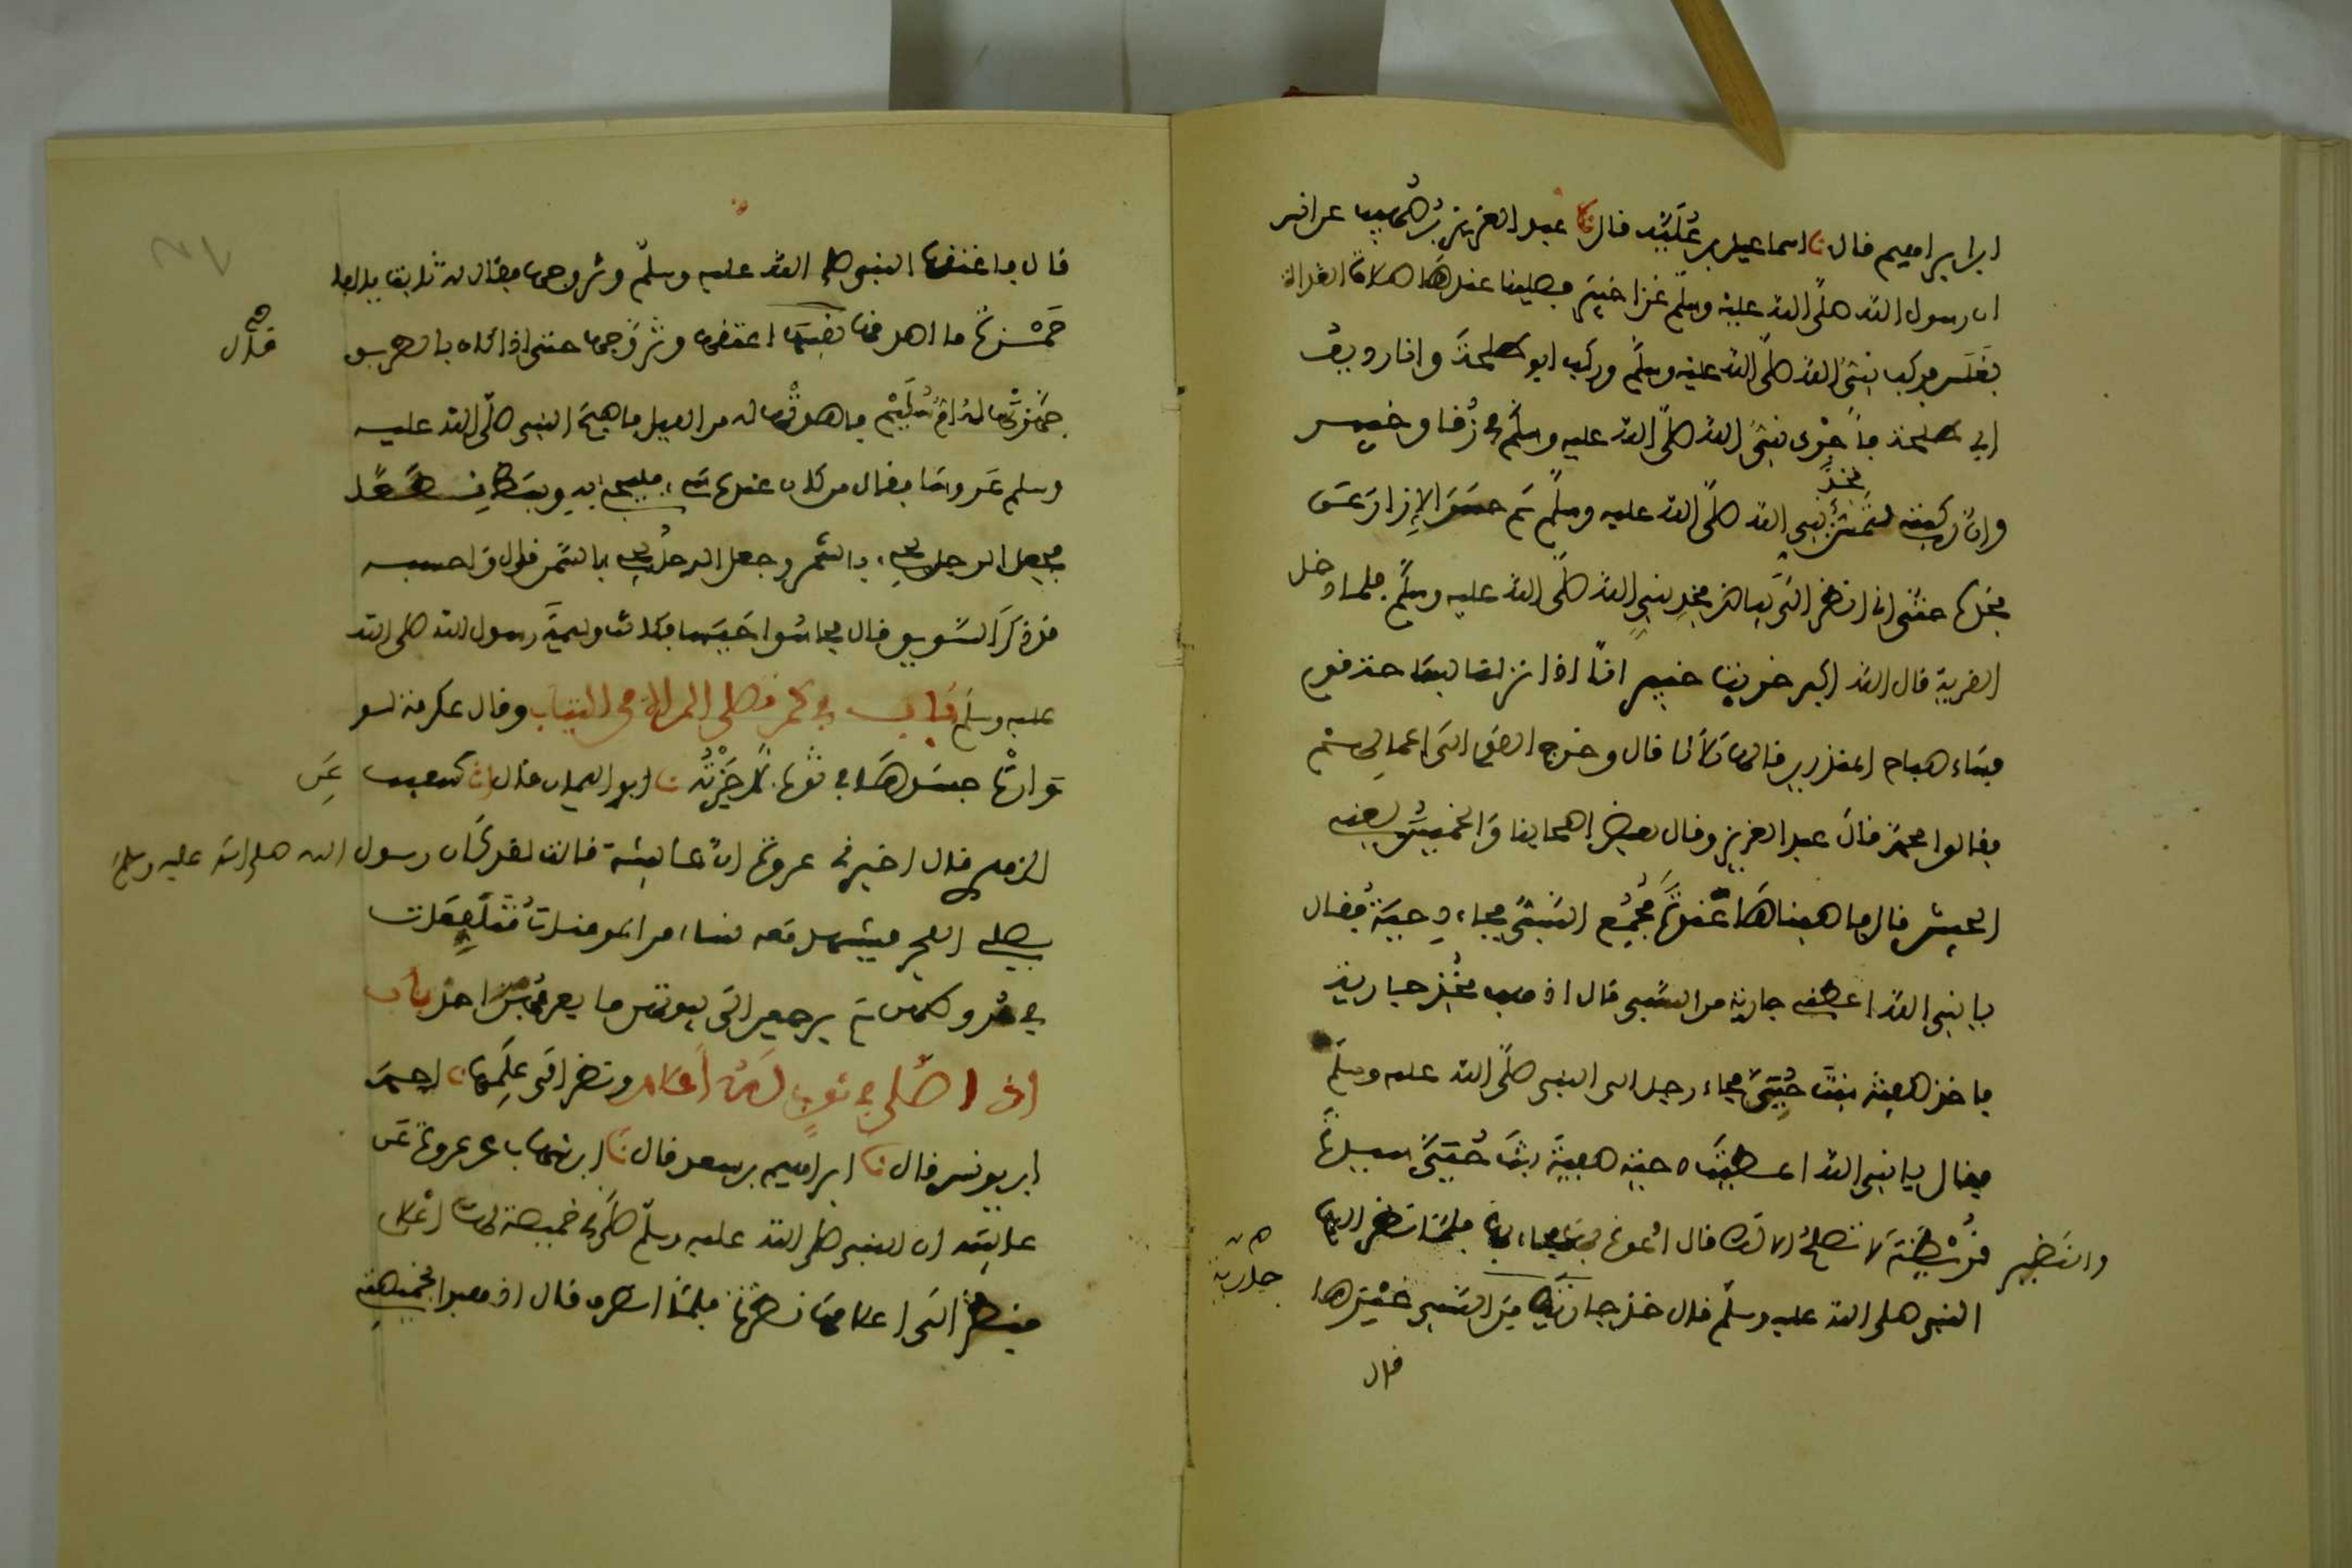 ابن ابراهيم قال نا اسماعيل بن علية قال نا عبد العزيز بن صهيب عن انس
ان رسول الله صلى الله عليه وسلم غزا خيبر فصلينا عندها صلاة الغداة
بغلس فركب نبي الله صلى الله عليه وسلم وركب ابو طلحة وانا رديف
ابي طلحة فاجرى نبي الله صلى الله عليه وسلم في زقاق خيبر
وان ركبتي لتمس فخذ نبي الله صلى الله عليه وسلم ثم حسر الازار عن
فخذه حتى اني انظر الى بياض فخذ نبي الله صلى الله عليه وسلم فلما دخل
القرية قال الله اكبر خربت خيبر انا اذا نزلنا بساحة قوم
فساء صباح المنذرين قالها ثلاثا قال وخرج القوم الى اعمالهم
فقالوا محمد قال عبد العزيز وقال بعض اصحابنا والخميس يعني
الجيش قال فاصبناها عنوة فجمع السبي فجاء دحية فقال
يا نبي الله اعطني جارية من السبي قال اذهب فخذ جارية
فاخذ صفية بنت حيي فجاء رجل الى النبي صلى الله عليه وسلم
فقال يا نبي الله اعطيت دحية صفية بنت حيي سيدة
قريظة والنضير لا تصلح الا لك قال ادعوه بها فجاء بها فلما نظر اليها
النبي صلى الله عليه وسلم قال خذ جارية من السبي غيرها
جارية
قال
قال فاعتقها النبي صلى الله عليه وسلم وتزوجها فقال له ثابت يا ابا
حمزة ما اصدقها قال نفسها اعتقها وتزوجها حتى اذا كان بالطريق
جهزتها له ام سليم فاهدتها له من الليل فاصبح النبي صلى الله عليه
وسلم عروسا فقال من كان عنده شيء فليجئ به وبسط نطعا
فجعل الرجل يجيء بالتمر وجعل الرجل يجيء بالسمن قال واحسبه
قد ذكر السويق قال فحاسوا حيسا فكانت وليمة رسول الله صلى الله
عليه وسلم باب في كم تصلي المراة من الثياب وقال عكرمة لو
وارت جسدها في ثوب لاجزته نا ابو اليمان قال انا شعيب عن
الزهري قال اخبرني عروة ان عائشة قالت لقد كان رسول الله صلى الله عليه وسلم
يصلي الفجر فيشهد معه نساء من المومنات متلفعات
في مروطهن ثم يرجعن الى بيوتهن ما يعرفهن احد باب
اذا صلى في ثوب له اعلام ونظر الى علمها نا احمد
ابن يونس قال نا ابراهيم بن سعد قال نا ابن شهاب عن عروة عن
عايشة ان النبي صلى الله عليه وسلم صلى في خميصة لها اعلام
فنظر الى اعلامها نظرة فلما انصرف قال اذهبوا بخميصتي